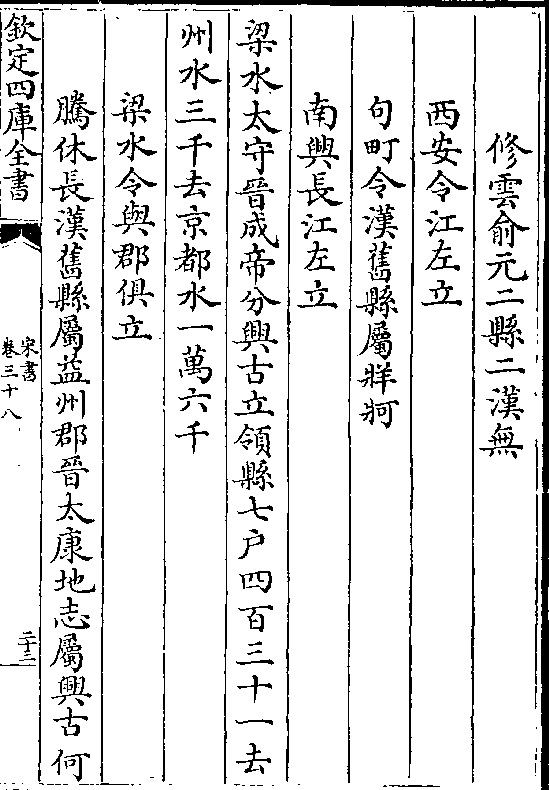 修雲俞元二縣二漢無
西安令江左立
句町令漢舊縣屬牂牁
南興長江左立
梁水太守晉成帝分興古立領縣七户四百三十一去
州水三千去京都水一萬六千
梁水令與郡俱立
騰休長漢舊縣屬益州郡晉太康地志屬興古何
欽定四庫全書
宋書
卷三十八
二十二